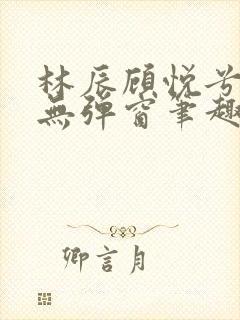 林辰顾悦兮
無彈窗筆趣
卿言月